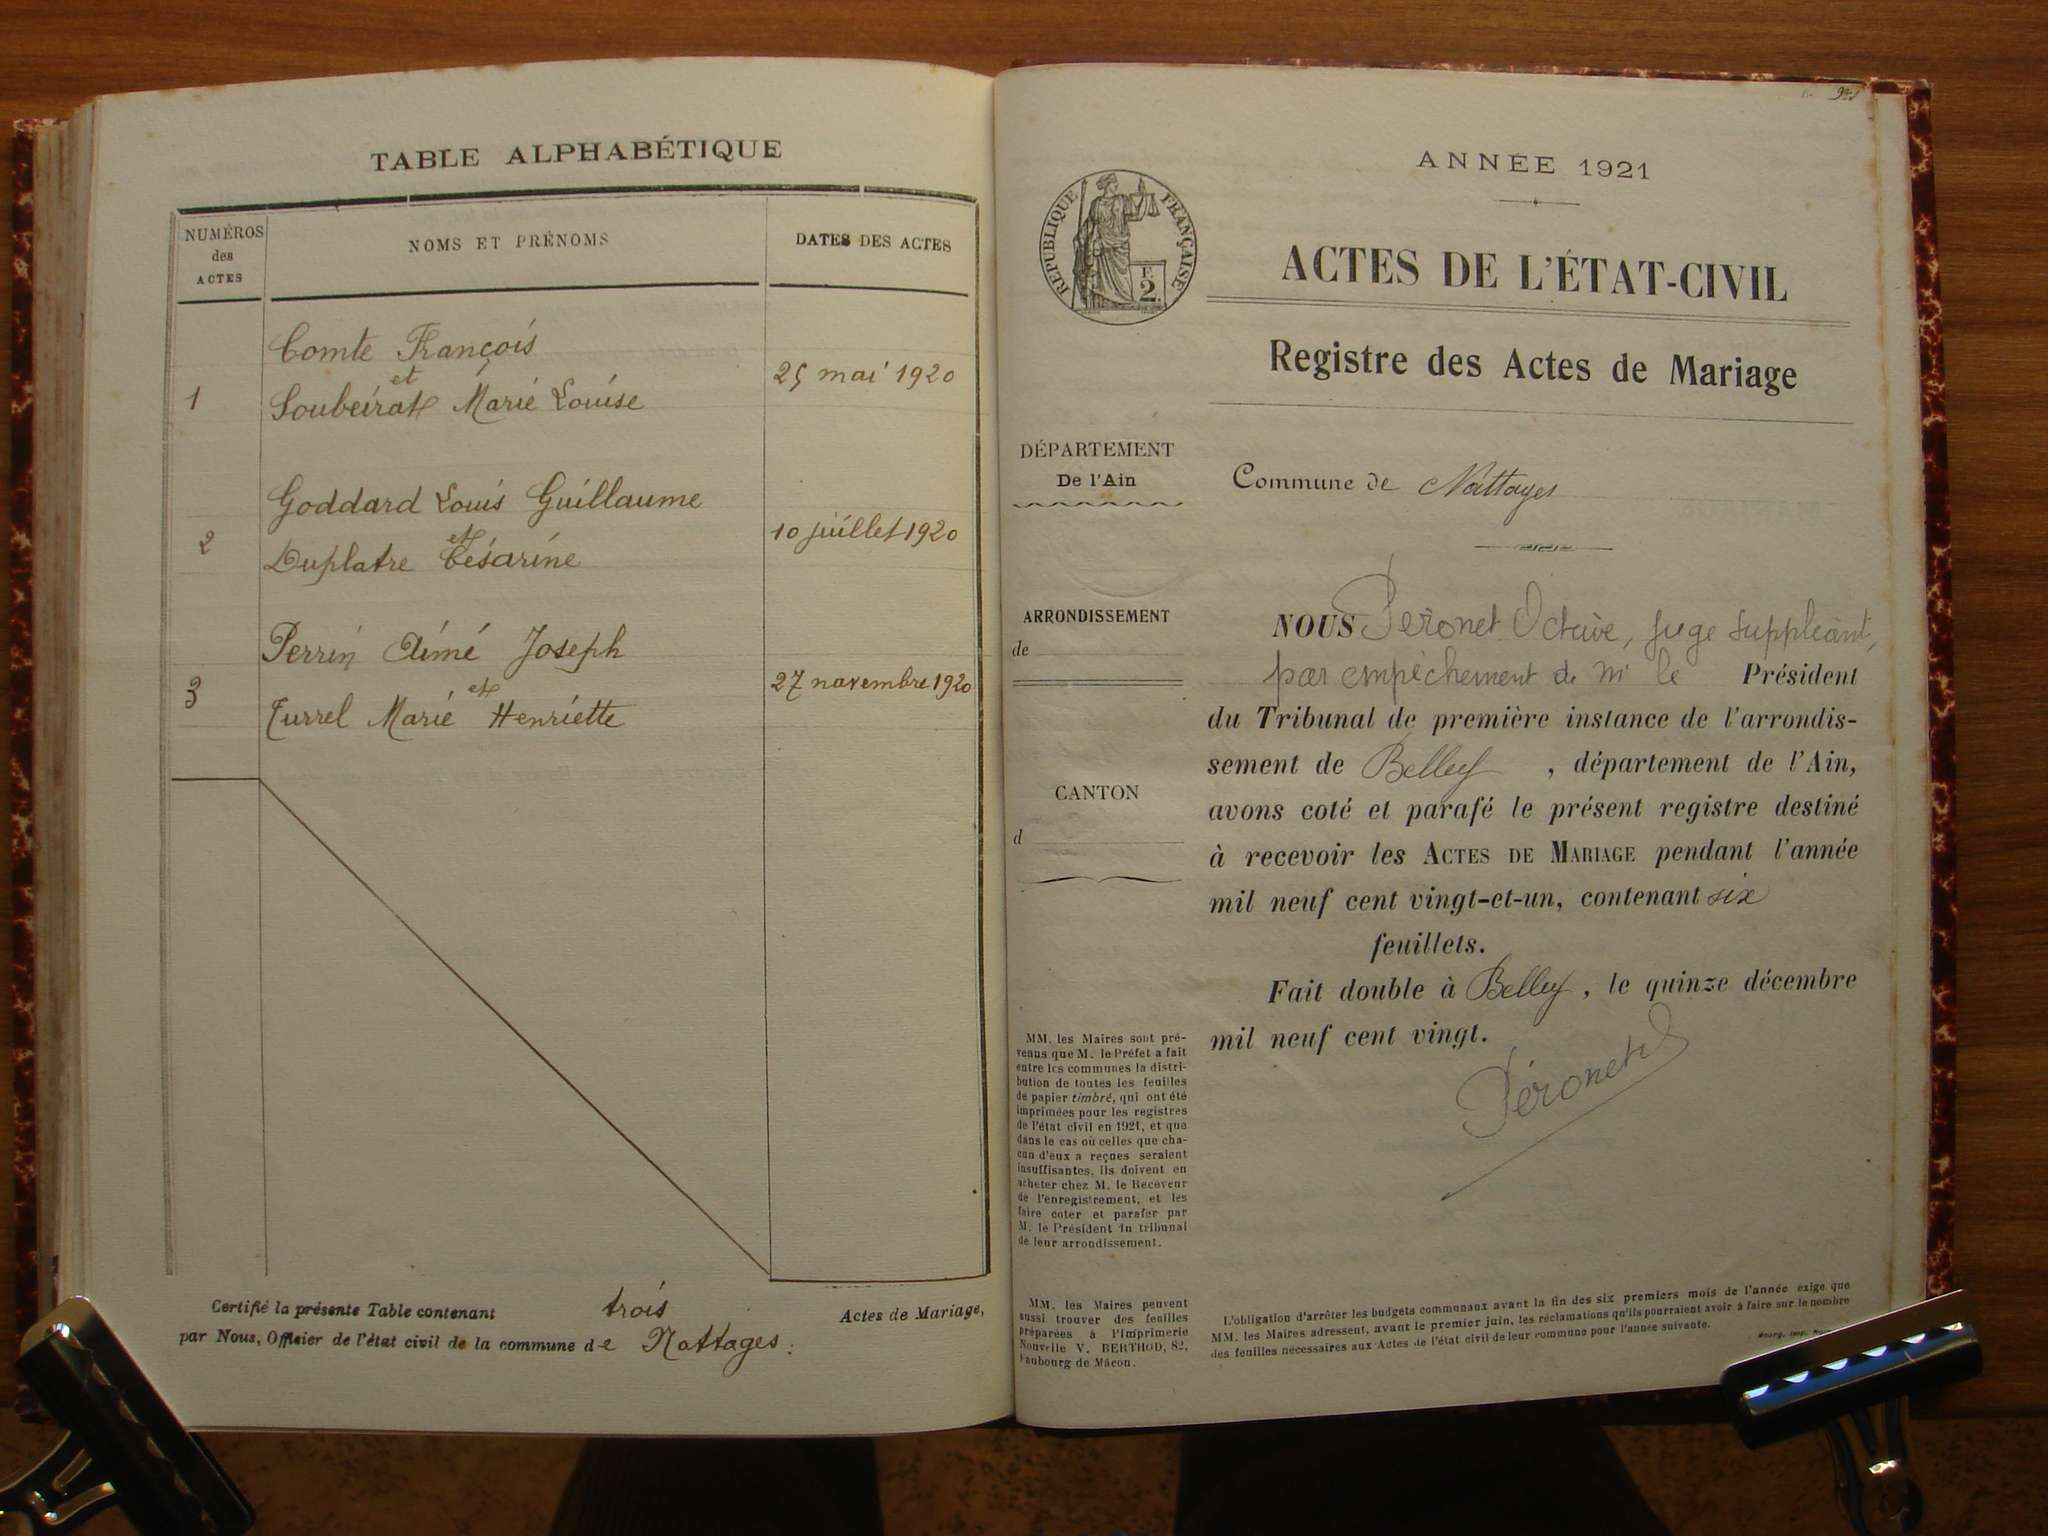 TABLE ALPHABÉTIQUE
NUMÉROS
des
ACTES
NOMS ET PRÉNOMS
DATES DES ACTES
Comte François
et
1 Soubeirat Marie Louise
25 mai 1920
Goddard Louis Guillaume
et
2 Duplatre Césarine
10 juillet 1920
Perrin Aimé Joseph
et
3 Turrel Marie Henriette
27 novembre 1920
Certifié la présente Table contenant trois Actes de Mariage,
par Nous, Officier de l'état civil de la commune de Nattages.
ANNÉE 1921
RÉPUBLIQUE FRANÇAISE
F.
2.
ACTES DE L'ÉTAT-CIVIL
Registre des Actes de Mariage
DÉPARTEMENT
De l'Ain
ARRONDISSEMENT
de
CANTON
d
Commune de Nattages
NOUS Péronet Octave, juge suppléant,
par empêchement de Mr le Président
du Tribunal de première instance de l'arrondis-
sement de Belley, département de l'Ain,
avons coté et parafé le présent registre destiné
à recevoir les ACTES DE MARIAGE pendant l'année
mil neuf cent vingt-et-un, contenant six
feuillets.
Fait double à Belley, le quinze décembre
mil neuf cent vingt.
Péronet
MM. les Maires sont pré-
venus que M. le Préfet a fait
entre les communes la distri-
bution de toutes les feuilles
de papier timbré, qui ont été
imprimées pour les registres
de l'état civil en 1921, et que
dans le cas où celles que cha-
cun d'eux a reçues seraient
insuffisantes, ils doivent en
acheter chez M. le Receveur
de l'enregistrement, et les
faire coter et parafer par
M. le Président du tribunal
de leur arrondissement.
MM. les Maires peuvent
aussi trouver des feuilles
préparées à l'Imprimerie
Nouvelle V. BERTHOD, 82,
Faubourg de Mâcon.
L'obligation d'arrêter les budgets communaux avant la fin des six premiers mois de l'année exige que
MM. les Maires adressent, avant le premier juin, les réclamations qu'ils pourraient avoir à faire sur le nombre
des feuilles nécessaires aux Actes de l'état civil de leur commune pour l'année suivante.
Bourg, Imp.